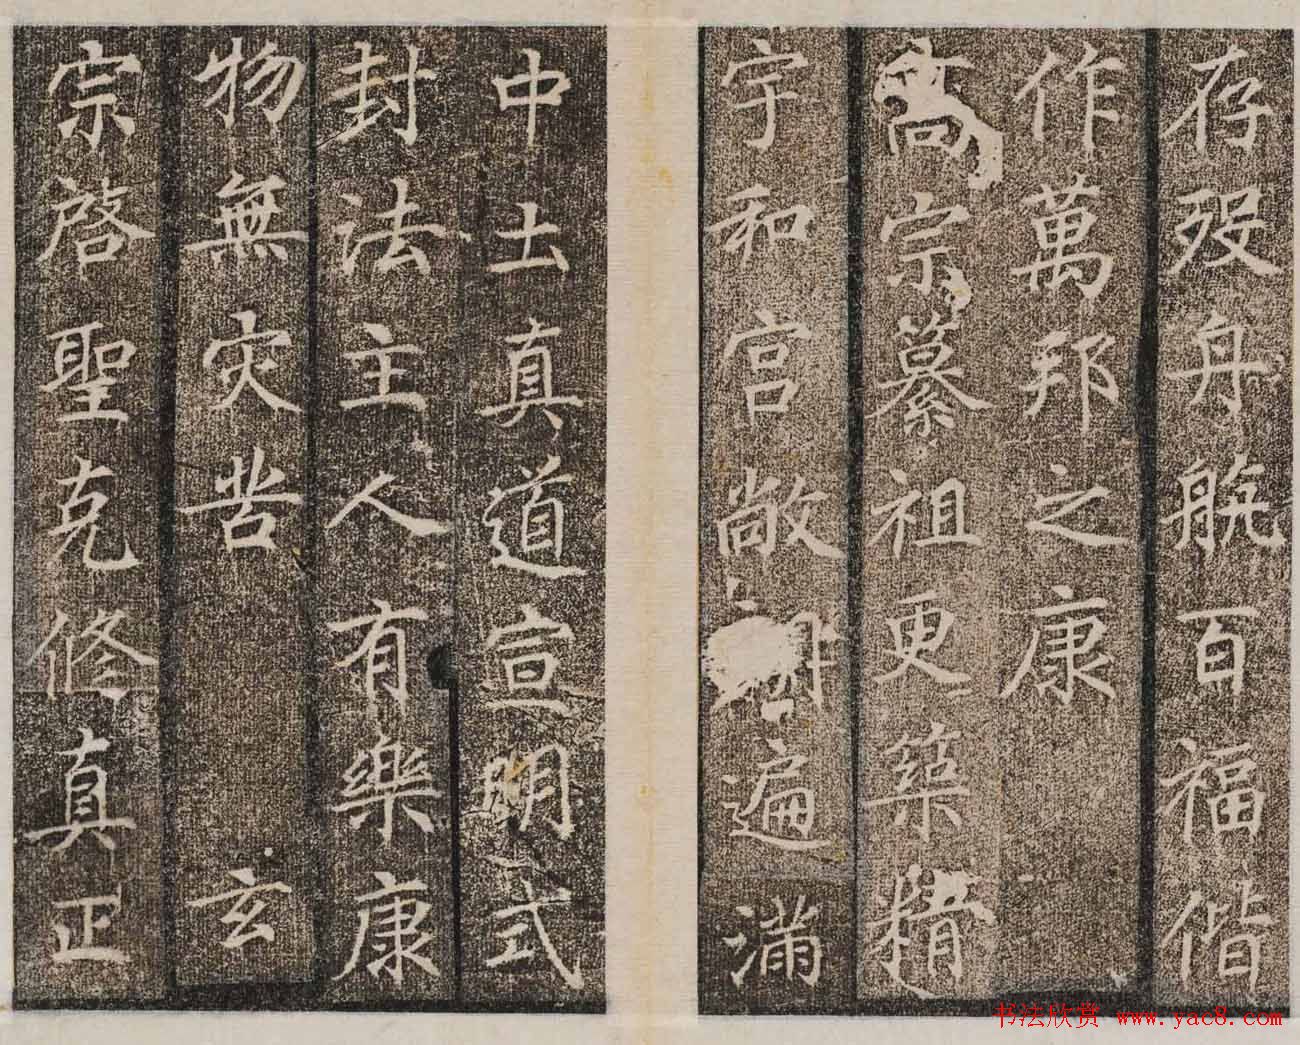 存殁舟航百福偕
作萬邦之康
高宗纂祖更築精
宇和宫敞朗遍满
中土真道宣明式
封法主人有樂康
物無灾苦 玄
宗啓聖克修真正
书法欣赏 www.yac8.com